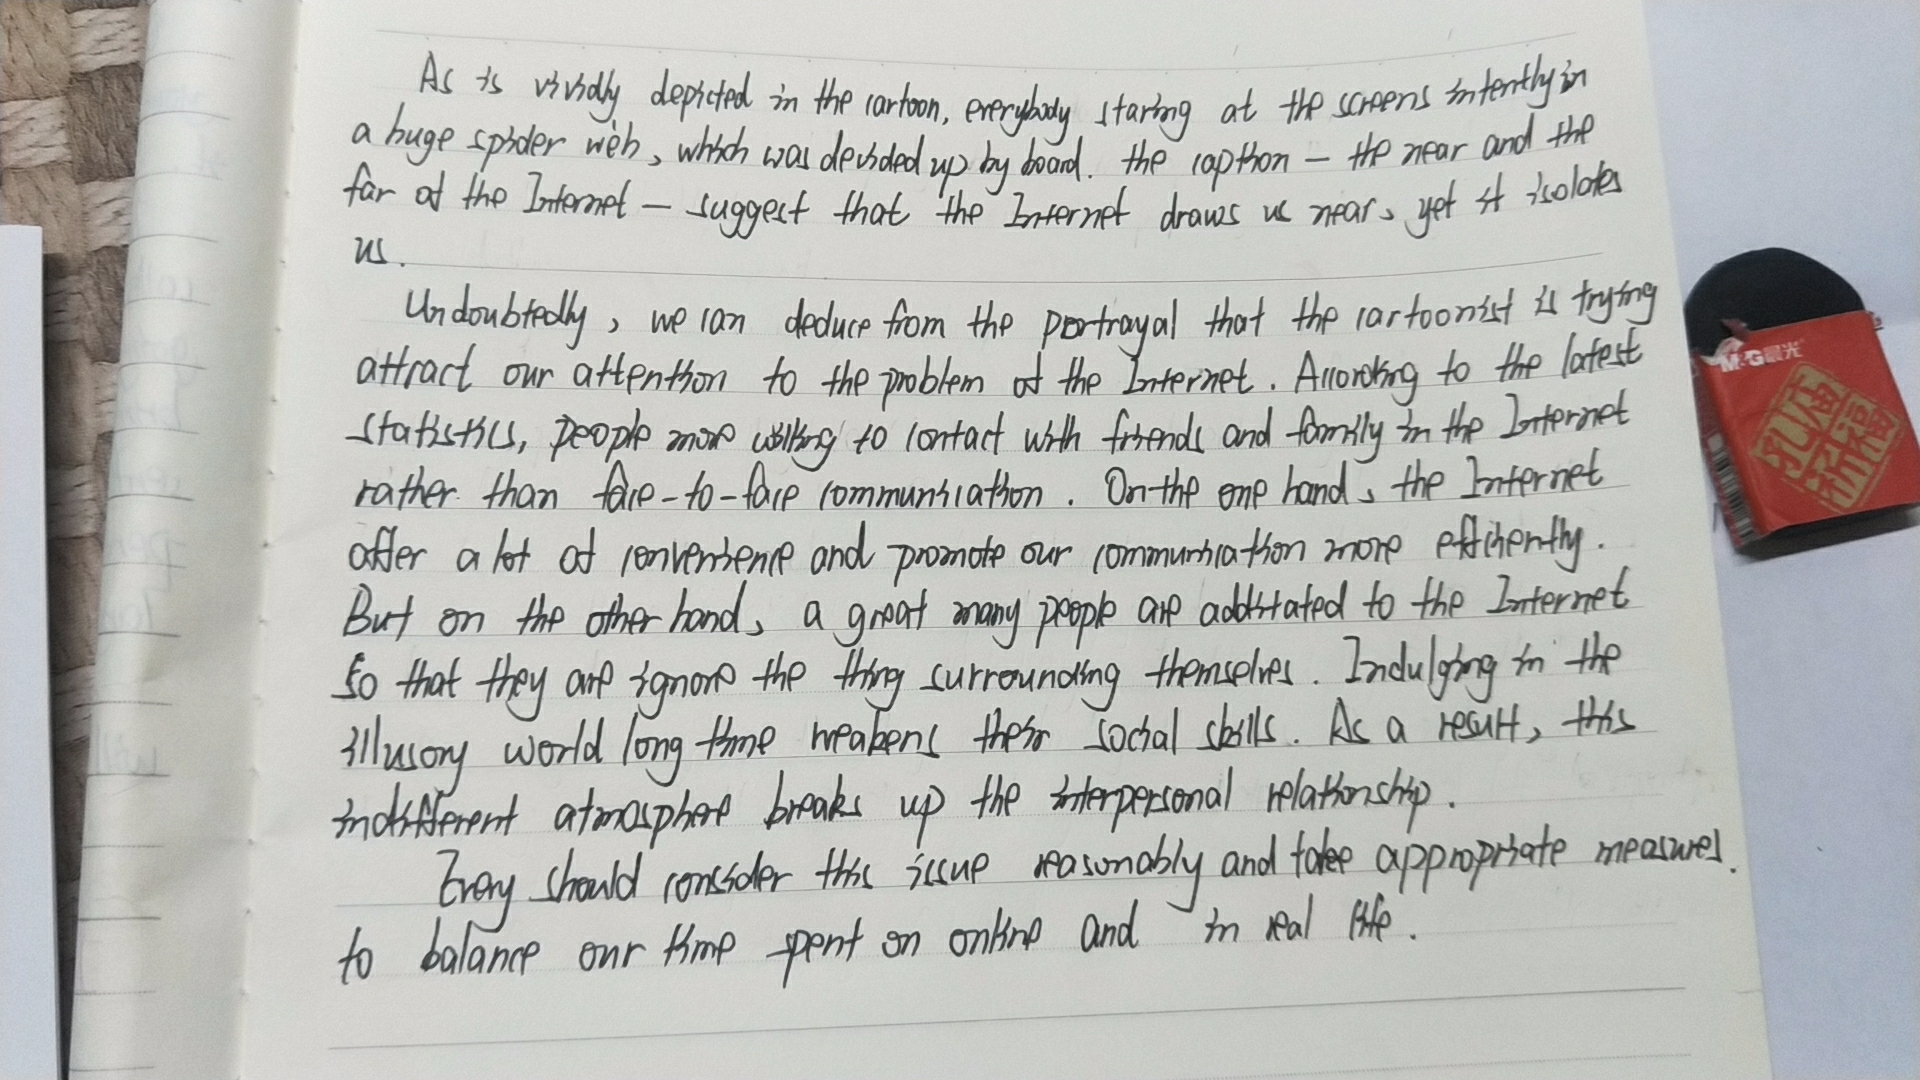 As is vividly depicted in the cartoon, everybody staring at the screens intently in
a huge spider web, which was devided up by board. the caption — the near and the
far of the Internet — suggest that the Internet draws us near, yet it isolates
us.
Undoubtedly, we can deduce from the portrayal that the cartoonist is trying
attract our attention to the problem of the Internet. According to the latest
statistics, people more willing to contact with friends and family in the Internet
rather than face-to-face communication. On the one hand, the Internet
offer a lot of convenience and promote our communication more efficiently.
But on the other hand, a great many people are addictated to the Internet
so that they are ignore the thing surrounding themselves. Indulging in the
illusory world long time weakens their social skills. As a result, this
indifferent atmosphere breaks up the interpersonal relationship.
Every should consider this issue reasonably and take appropriate measures.
to balance our time spent on online and in real life.
M&G晨光
孔庙祈福